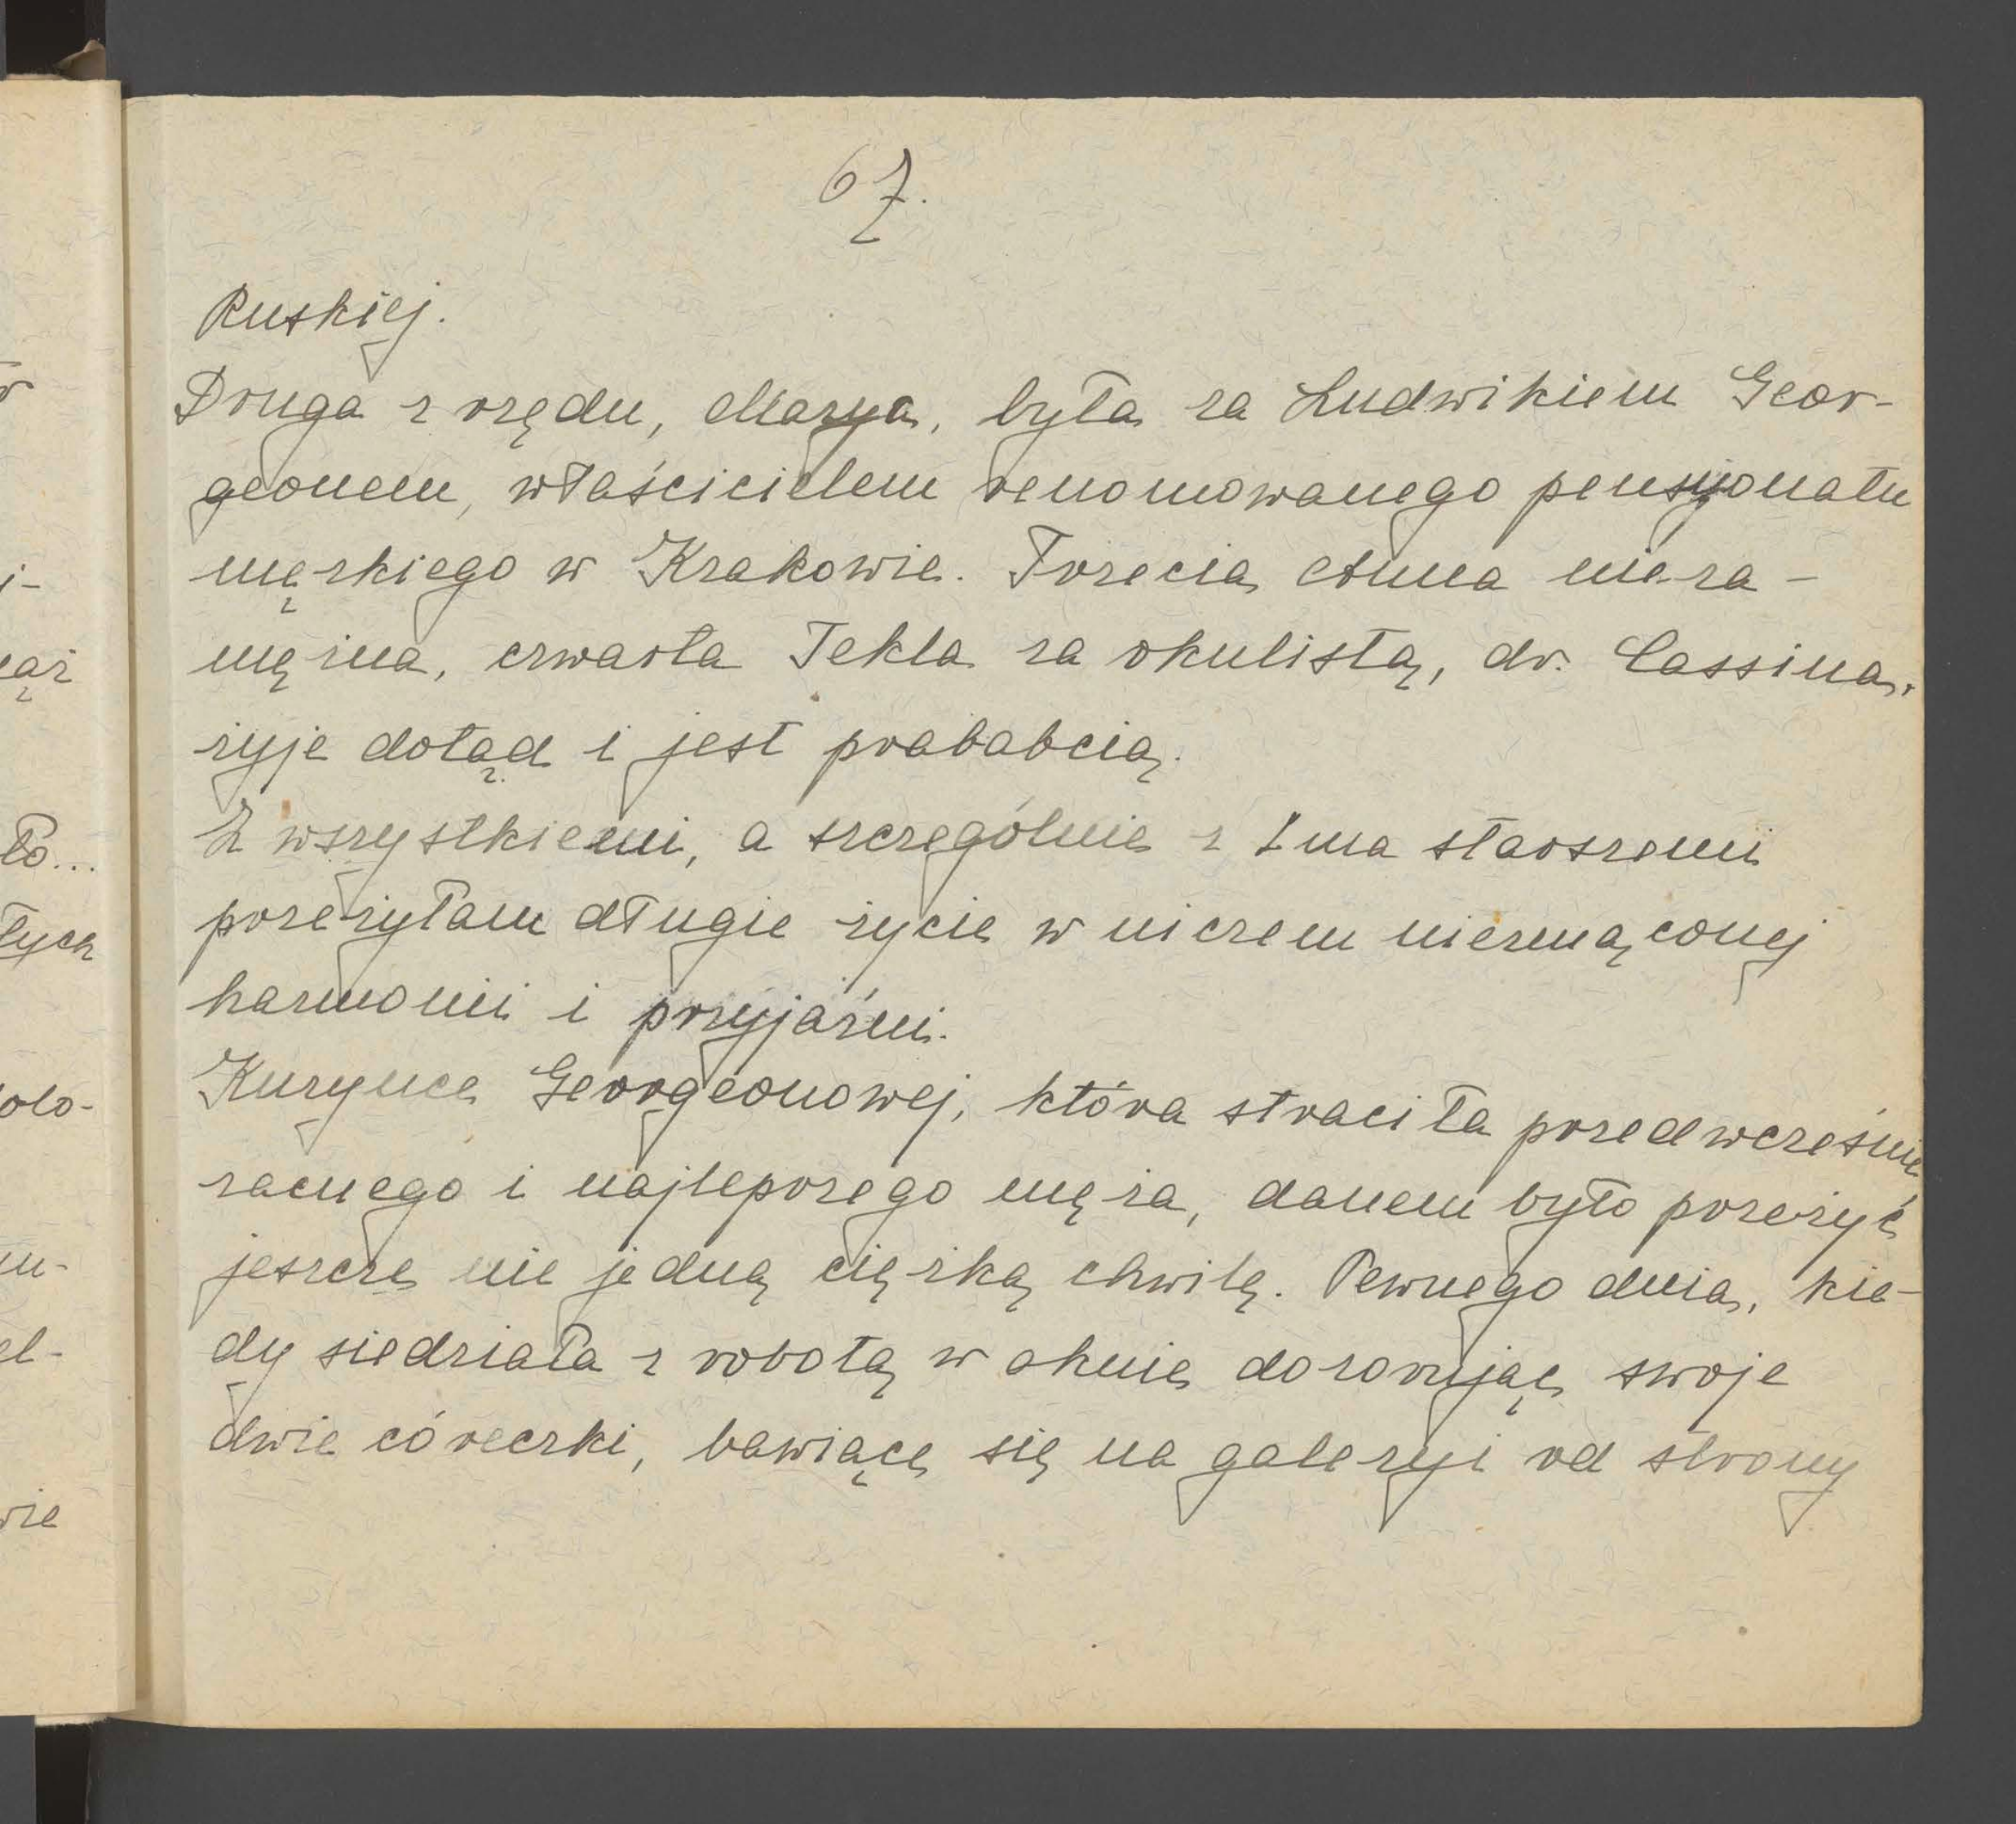 67.
Ruskiej.
Druga z rzędu, Marya, była za Ludwikiem Geor-
geonem, właścicielem renomowanego pensyonatu
męzkiego w Krakowie. Trzecia Anna nieza-
mężna, czwarta Tekla za okulistą, dr. Cassina,
żyje dotąd i jest prababcią.
Z wszystkiemi, a szczególnie z 2ma starszemi
przeżyłam długie życie w niczem niezmąconej
harmonii i przyjaźni.
Kuzynce Georgeonowej, która straciła przedwcześnie
zacnego i najlepszego męża, danem było przeżyć
jeszcze nie jedną ciężką chwilę. Pewnego dnia, kie-
dy siedziała z robotą w oknie dozorując swoje
dwie córeczki, bawiące się na galeryi od strony
i-
ąż
ło...
łych
olo-
el-